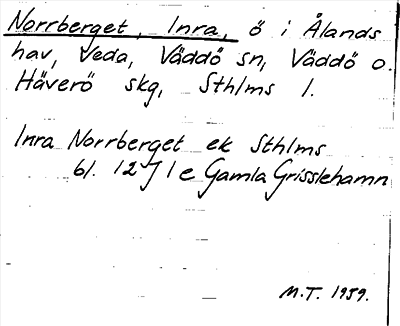 Norrberget, Inra, ö i Ålands
hav, Veda, Väddö sn, Väddö o.
Häverö skg, Sthlms l.
Inra Norrberget ek Sthlms
bl. 12 J 1 e Gamla Grisslehamn
M.T. 1959.